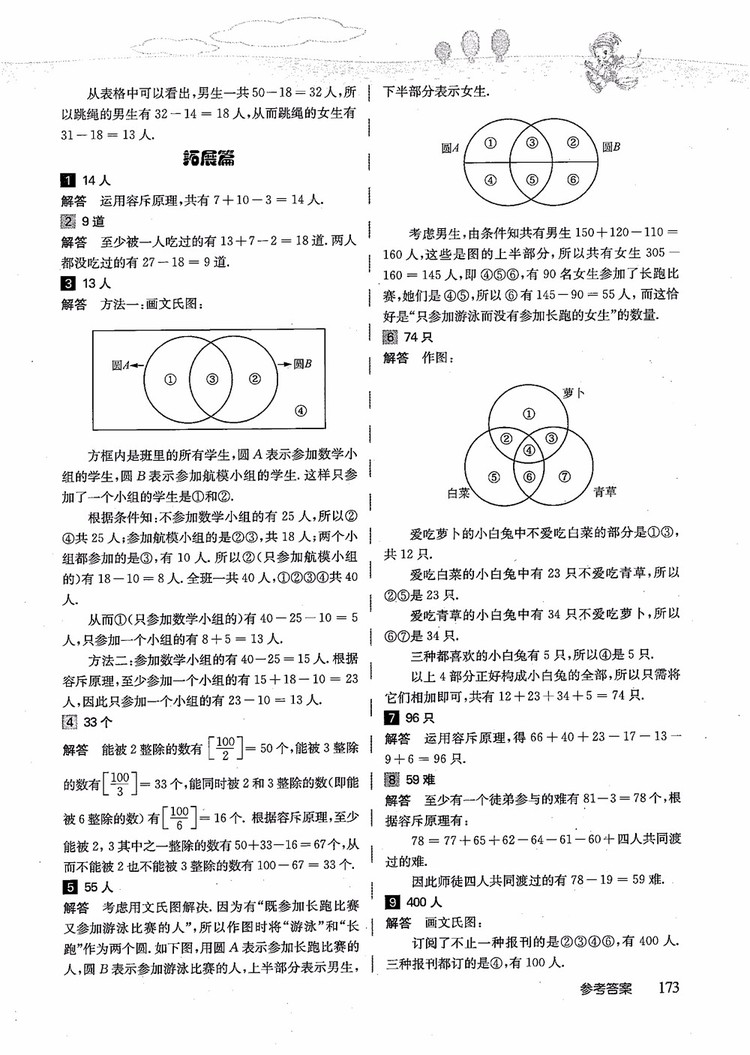 从表格中可以看出,男生一共50-18=32人,所
以跳绳的男生有32-14=18人,从而跳绳的女生有
31-18=13人.
拓展篇
1 14人
解答 运用容斥原理,共有7+10-3=14人.
2 9道
解答 至少被一人吃过的有13+7-2=18道.两人
都没吃过的有27-18=9道.
3 13人
解答 方法一:画文氏图:
圆A ① ③ ② 圆B
④
方框内是班里的所有学生,圆A表示参加数学小
组的学生,圆B表示参加航模小组的学生.这样只参
加了一个小组的学生是①和②.
根据条件知:不参加数学小组的有25人,所以②
④共25人;参加航模小组的是②③,共18人;两个小
组都参加的是③,有10人.所以②(只参加航模小组
的)有18-10=8人.全班一共40人,①②③④共40
人.
从而①(只参加数学小组的)有40-25-10=5
人,只参加一个小组的有8+5=13人.
方法二:参加数学小组的有40-25=15人.根据
容斥原理,至少参加一个小组的有15+18-10=23
人,因此只参加一个小组的有23-10=13人.
4 33个
解答 能被2整除的数有[100/2]=50个,能被3整除
的数有[100/3]=33个,能同时被2和3整除的数(即能
被6整除的数)有[100/6]=16个.根据容斥原理,至少
能被2,3其中之一整除的数有50+33-16=67个,从
而不能被2也不能被3整除的数有100-67=33个.
5 55人
解答 考虑用文氏图解决.因为有“既参加长跑比赛
又参加游泳比赛的人”,所以作图时将“游泳”和“长
跑”作为两个圆.如下图,用圆A表示参加长跑比赛的
人,圆B表示参加游泳比赛的人,上半部分表示男生,
下半部分表示女生.
圆A ① ③ ② 圆B
④ ⑤ ⑥
考虑男生,由条件知共有男生150+120-110=
160人,这些是图的上半部分,所以共有女生305-
160=145人,即④⑤⑥,有90名女生参加了长跑比
赛,她们是④⑤,所以⑥有145-90=55人,而这恰
好是“只参加游泳而没有参加长跑的女生”的数量.
6 74只
解答 作图:
萝卜
①
② ③
④
⑤ ⑥ ⑦
白菜 青草
爱吃萝卜的小白兔中不爱吃白菜的部分是①③,
共12只.
爱吃白菜的小白兔中有23只不爱吃青草,所以
②⑤是23只.
爱吃青草的小白兔中有34只不爱吃萝卜,所以
⑥⑦是34只.
三种都喜欢的小白兔有5只,所以④是5只.
以上4部分正好构成小白兔的全部,所以只需将
它们相加即可,共有12+23+34+5=74只.
7 96只
解答 运用容斥原理,得66+40+23-17-13-
9+6=96只.
8 59难
解答 至少有一个徒弟参与的难有81-3=78个,根
据容斥原理有:
78=77+65+62-64-61-60+四人共同渡
过的难.
因此师徒四人共同渡过的有78-19=59难.
9 400人
解答 画文氏图:
订阅了不止一种报刊的是②③④⑥,有400人.
三种报刊都订的是④,有100人.
参考答案 173